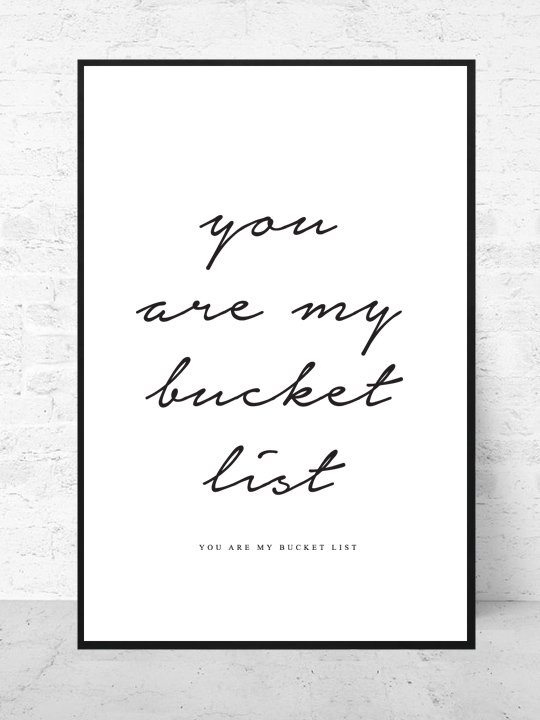 you
are my
bucket
list
YOU ARE MY BUCKET LIST